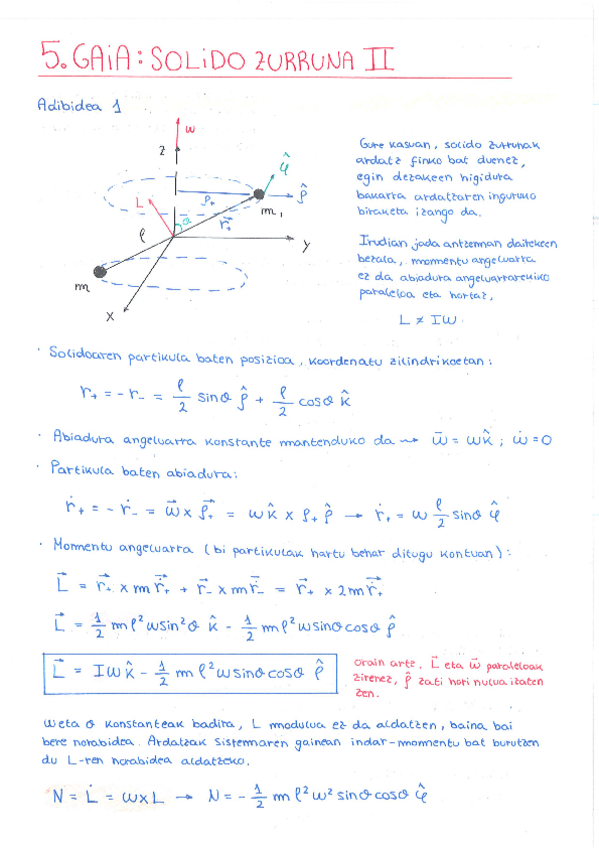 5. GAIA: SOLIDO ZURRUNA II
Adibidea 1
w
z
φ̂
ρ₊
ρ̂
L
θ
r⃗₊
m₁
ℓ
y
m
x
Gure kasuan, solido zurrunak
ardatz finko bat duenez,
egin dezakeen higidura
bakarra ardatzaren inguruko
biraketa izango da.
Irudian jada antzeman daitekeen
bezala, momentu angeluarra
ez da abiadura angeluarrarekiko
paraleloa eta hortaz,
L ≠ Iw.
· Solidoaren partikula baten posizioa, koordenatu zilindrikoetan:
r₊ = - r₋ = ℓ/2 sinθ ρ̂ + ℓ/2 cosθ k̂
· Abiadura angeluarra konstante mantenduko da ⇝ w⃗ = wk̂ ; ẇ = 0
· Partikula baten abiadura:
ṙ₊ = - ṙ₋ = w⃗ x ρ⃗₊ = wk̂ x ρ₊ ρ̂ → ṙ₊ = w ℓ/2 sinθ φ̂
· Momentu angeluarra (bi partikulak hartu behar ditugu kontuan):
L⃗ = r⃗₊ x m ṙ⃗₊ + r⃗₋ x m ṙ⃗₋ = r⃗₊ x 2m ṙ⃗₊
L⃗ = 1/2 mℓ²w sin²θ k̂ - 1/2 mℓ²w sinθ cosθ ρ̂
L⃗ = Iwk̂ - 1/2 mℓ²w sinθ cosθ ρ̂
Orain arte, L⃗ eta w⃗ paraleloak
zirenez, ρ̂ zati hori nulua izaten
zen.
w eta θ konstanteak badira, L modulua ez da aldatzen, baina bai
bere norabidea. Ardatzak sistemaren gainean indar-momentu bat burutzen
du L-ren norabidea aldatzeko.
N = L̇ = w x L → N = - 1/2 mℓ²w² sinθ cosθ φ̂